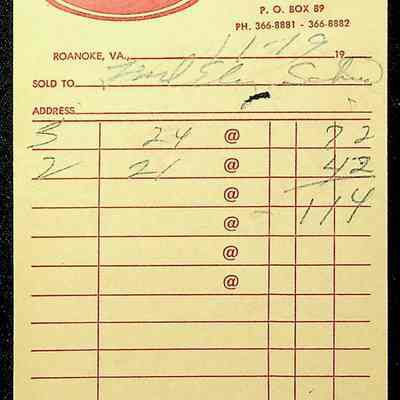 P. O. BOX 89
PH. 366-8881 - 366-8882
ROANOKE, VA., 11-19 19
SOLD TO
ADDRESS
3 24 @ 72
2 21 @ 42
@ 114
@
@
@